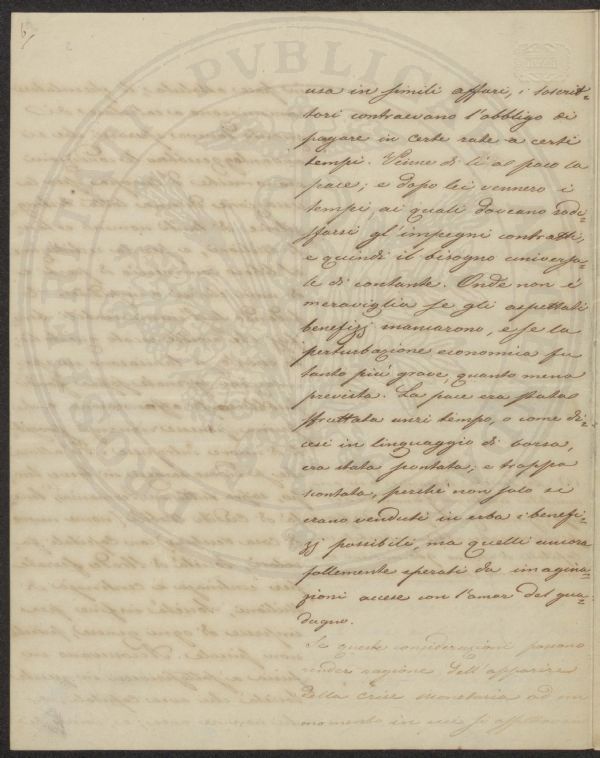 6/
PVBLICA
PROSPERITATI
usa in simili affari, i soscrit-
tori contraevano l'obbligo di
pagare in certe rate a certi
tempi. Venne di lì al poco la
pace; e dopo lei vennero i
tempi, ai quali doveano sodi-
sfarsi gl'impegni contratti,
e quindi il bisogno universa-
le di contante. Onde non è
meraviglia se gli aspettati
benefizj mancarono, e se la
perturbazione economia fu
tanto più grave, quanto meno
prevista. La pace era stata
sfruttata unri tempo, o come di-
cesi in linguaggio di borsa,
era stata scontata; e troppo
scontata, perchè non solo si
erano venduti in erba i benefi-
zj possibili, ma quelli ancora
follemente sperati da imagina-
zioni accese con l'amor del gua-
dagno.
Se queste considerazioni possono
render ragione dell'apparire
della crise monetaria ad un
momento in cui si aspettavano